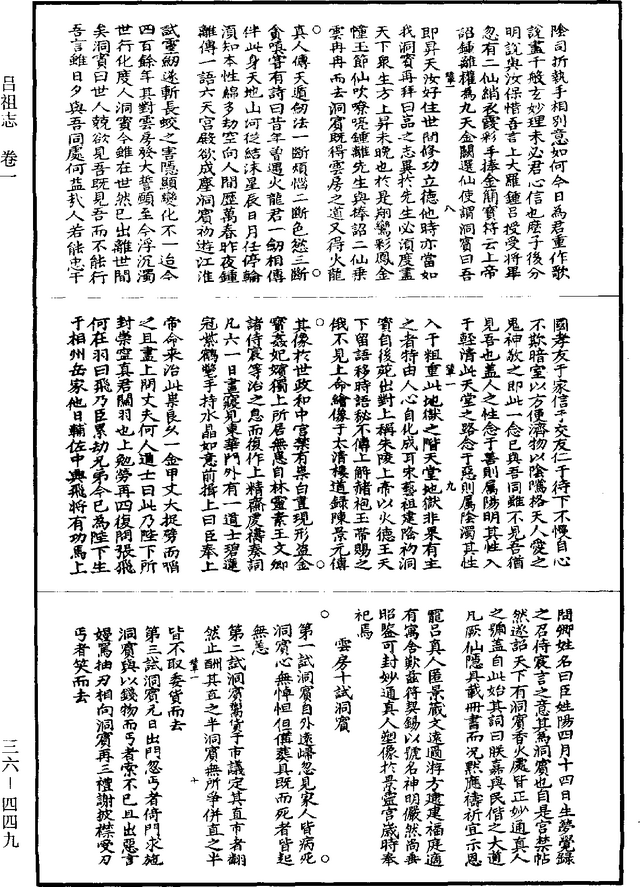 陰司折執手相別意如何今日為君重作歌
說盡千般玄妙理未必君心信也麼子後分
明說與汝保惜吾言上大羅鍾呂授受將畢
忽有二仙綃衣霞彩手捧金簡寶符云上帝
詔鍾離權為九天金闕選仙使謂洞賓曰吾
肇一 八
即昇天汝好住世間修功立德他時亦當如
我洞賓再拜曰嵒之志異於先生必須度盡
天下衆生方上昇未晚也於是翔鸞彩鳳金
幢玉節仙吹嘹喨鍾離先生與捧詔二仙乘
雲冉冉而去洞賓既得雲房之道又得火龍
真人傳天遁劒法一斷煩惱二斷色慾三斷
貪嗔嘗有詩曰昔年曾遇火龍君一劒相傳
伴此身天地山河從結沫星辰日月任停輪
須知本性綿多劫空向人間歷萬春昨夜鍾
離傳一語六天宮殿欲成塵洞賓初遊江淮
試靈劒遂斬長蛟之害隱顯變化不一迨今
四百餘年其對雲房發大誓願至今浮沉濁
世行化度人洞賓今雖在世然已出離世間
矣洞賓曰世人競欲見吾既見吾而不能行
吾言雖日夕與吾同處何益哉人若能忠于
國孝友于家信于交友仁于待下不慢自心
不欺暗室以方便濟物以陰騭格天人愛之
鬼神敬之即此一念已與吾同雖不見吾猶
見吾也蓋人之性念于善則屬陽明其性入
于輕清此天堂之路念于惡則屬陰濁其性
肇一 九
入于粗重此地獄之階天堂地獄非果有主
之者特由人心自化成耳宋藝祖建隆初洞
賓自後苑出對上稱朱陵上帝以火德王天
下留語移時語秘不傳上解赭袍玉帶賜之
俄不見上命繪像于太清樓道錄陳景元傳
其像於世政和中宮禁有祟白晝現形盜金
寶姦妃嬪獨上所居無患自林靈素王文卿
諸侍宸等治之息而復作上精齋虔禱奏詞
凡六一日晝寢見東華門外有一道士碧蓮
冠紫鶴氅手持水晶如意前揖上曰臣奉上
帝命來治此祟良久一金甲丈夫捉劈而啗
之且盡上問丈夫何人道士曰此乃陛下所
封崇寧真君關羽也上勉勞再四復問張飛
何在羽曰飛乃臣累劫兄弟今已為陛下生
于相州岳家他日輔佐中興飛將有功馬上
問卿姓名曰臣姓陽四月十四日生夢覺錄
之召侍宸言之意其為洞賓也自是宮禁帖
然遂詔天下有洞賓香火處皆正妙通真人
之號蓋自此始其詞曰朕嘉與民偕之大道
凡厥仙隱具載冊書而況默應禱祈宜示恩
寵呂真人匿景藏文遠邁游方遂建福庭適
有寓舍歎茲符契錫以號名神明儼然尚垂
昭鑒可封妙通真人塑像於景靈宮歲時奉
祀焉
雲房十試洞賓
第一試洞賓自外遠歸忽見家人皆病死
洞賓心無悼怛但備葬具既而死者皆起
無恙
第二試洞賓鬻貨于市議定其直市者翻
然止酬其直之半洞賓無所爭併直之半
肇一 十
皆不取委貨而去
第三試洞賓元日出門忽丐者倚門求施
洞賓與以錢物而丐者索不已且出惡言
嫚罵抽刃相向洞賓再三禮謝披襟受刃
丐者笑而去
呂祖志 卷一
三六—四四九